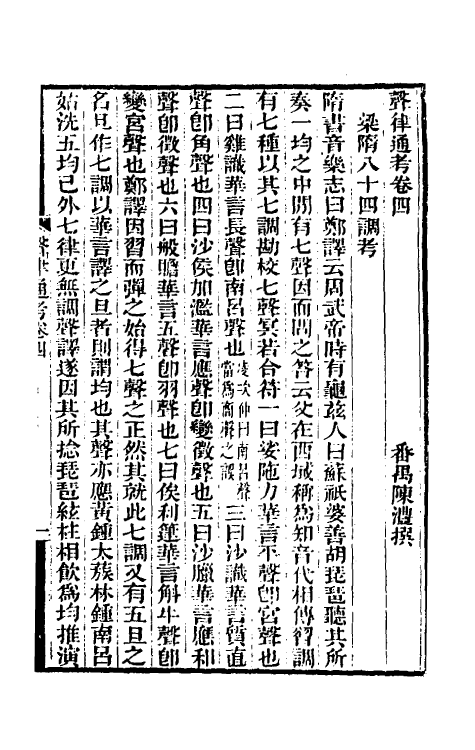 聲律通考卷四
番禺陳澧撰
梁隋八十四調考
隋書音樂志曰鄭譯云周武帝時有龜茲人曰蘇祇婆善胡琵琶聽其所
奏一均之中閒有七聲因而問之答云父在西域稱為知音代相傳習調
有七種以其七調勘校七聲冥若合符一曰娑陁力華言平聲卽宮聲也
二曰雞識華言長聲卽南呂聲也淩次仲曰南呂聲當為商聲之誤三曰沙識華言質直
聲卽角聲也四曰沙侯加濫華言應聲卽變徵聲也五曰沙臘華言應和
聲卽徵聲也六曰般贍華言五聲卽羽聲也七曰俟利箑華言斛牛聲卽
變宮聲也鄭譯因習而彈之始得七聲之正然其就此七調又有五旦之
名旦作七調以華言譯之旦者則謂均也其聲亦應黃鍾太蔟林鍾南呂
姑洗五均已外七律更無調聲譯遂因其所捻琵琶絃柱相飮為均推演
聲律通考卷四
一